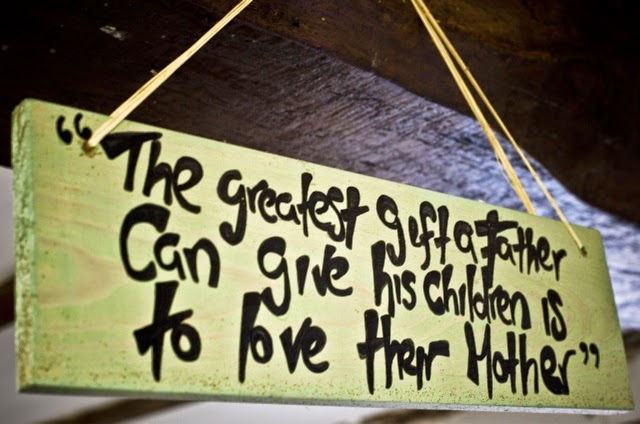 “The greatest gift a Father
Can give his children is
to love their Mother”